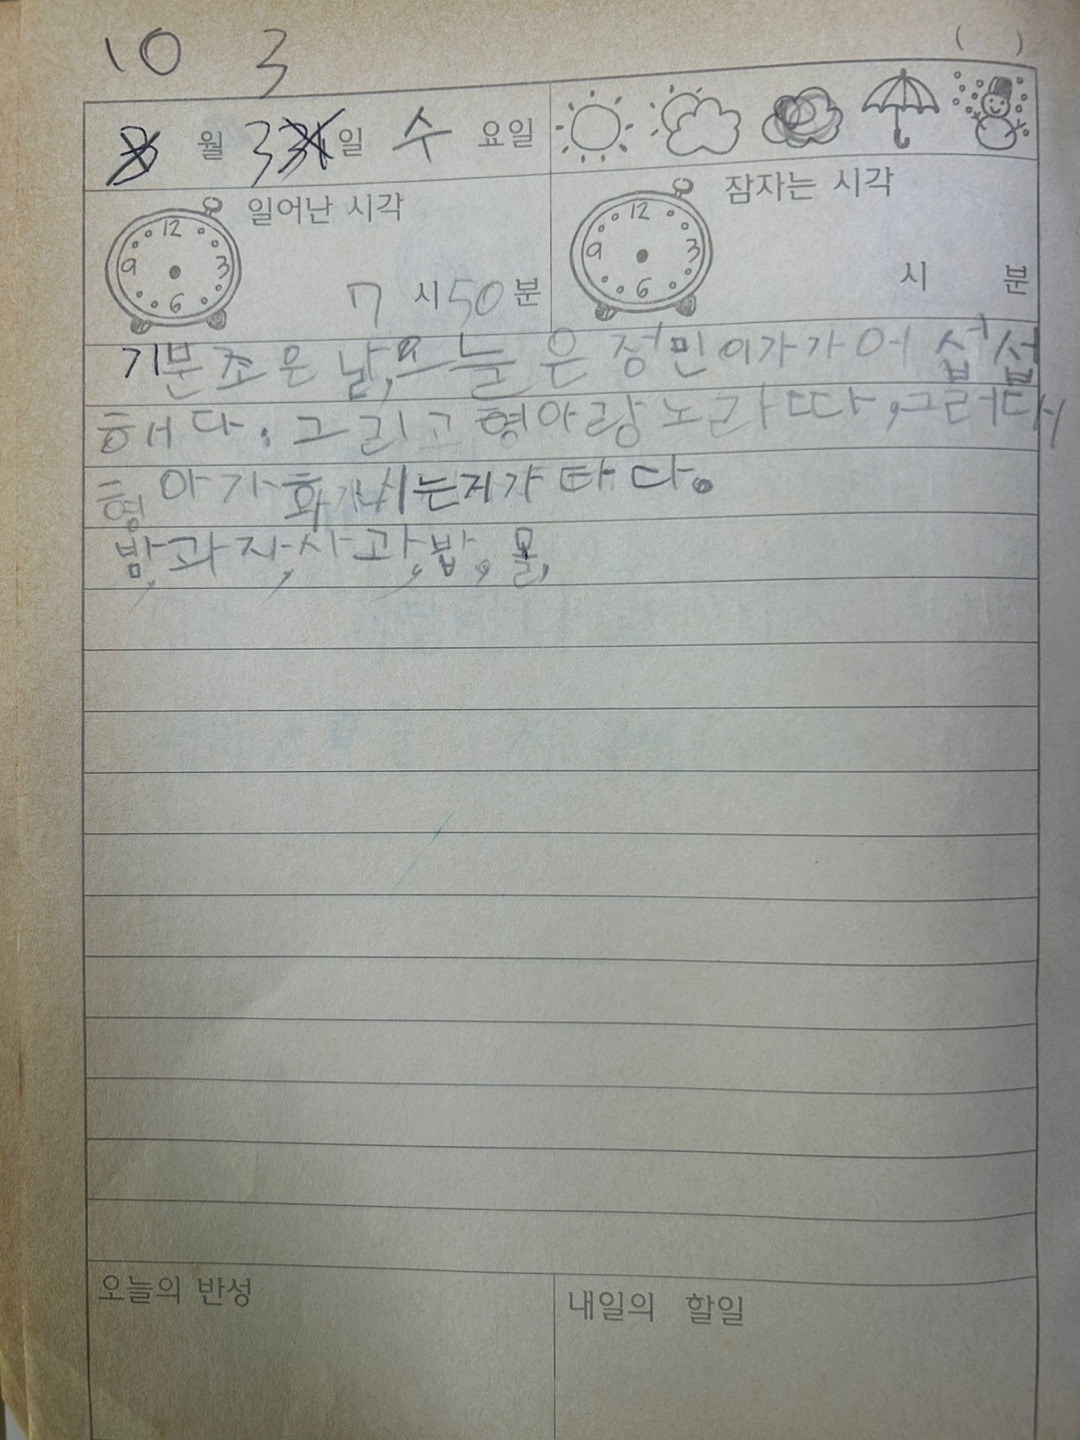 10 3
( )
월 3 일 수 요일
일어난 시각
잠자는 시각
12 3 6 9
12 3 6 9
7 시 50 분
시 분
기분조은 날, 오늘은 정민이가가어 섭섭
해다. 그리고 형아랑 노라따, 그러다
형아가 화가 는지가타다.
밤, 과자, 사과, 밥, 물,
오늘의 반성
내일의 할일